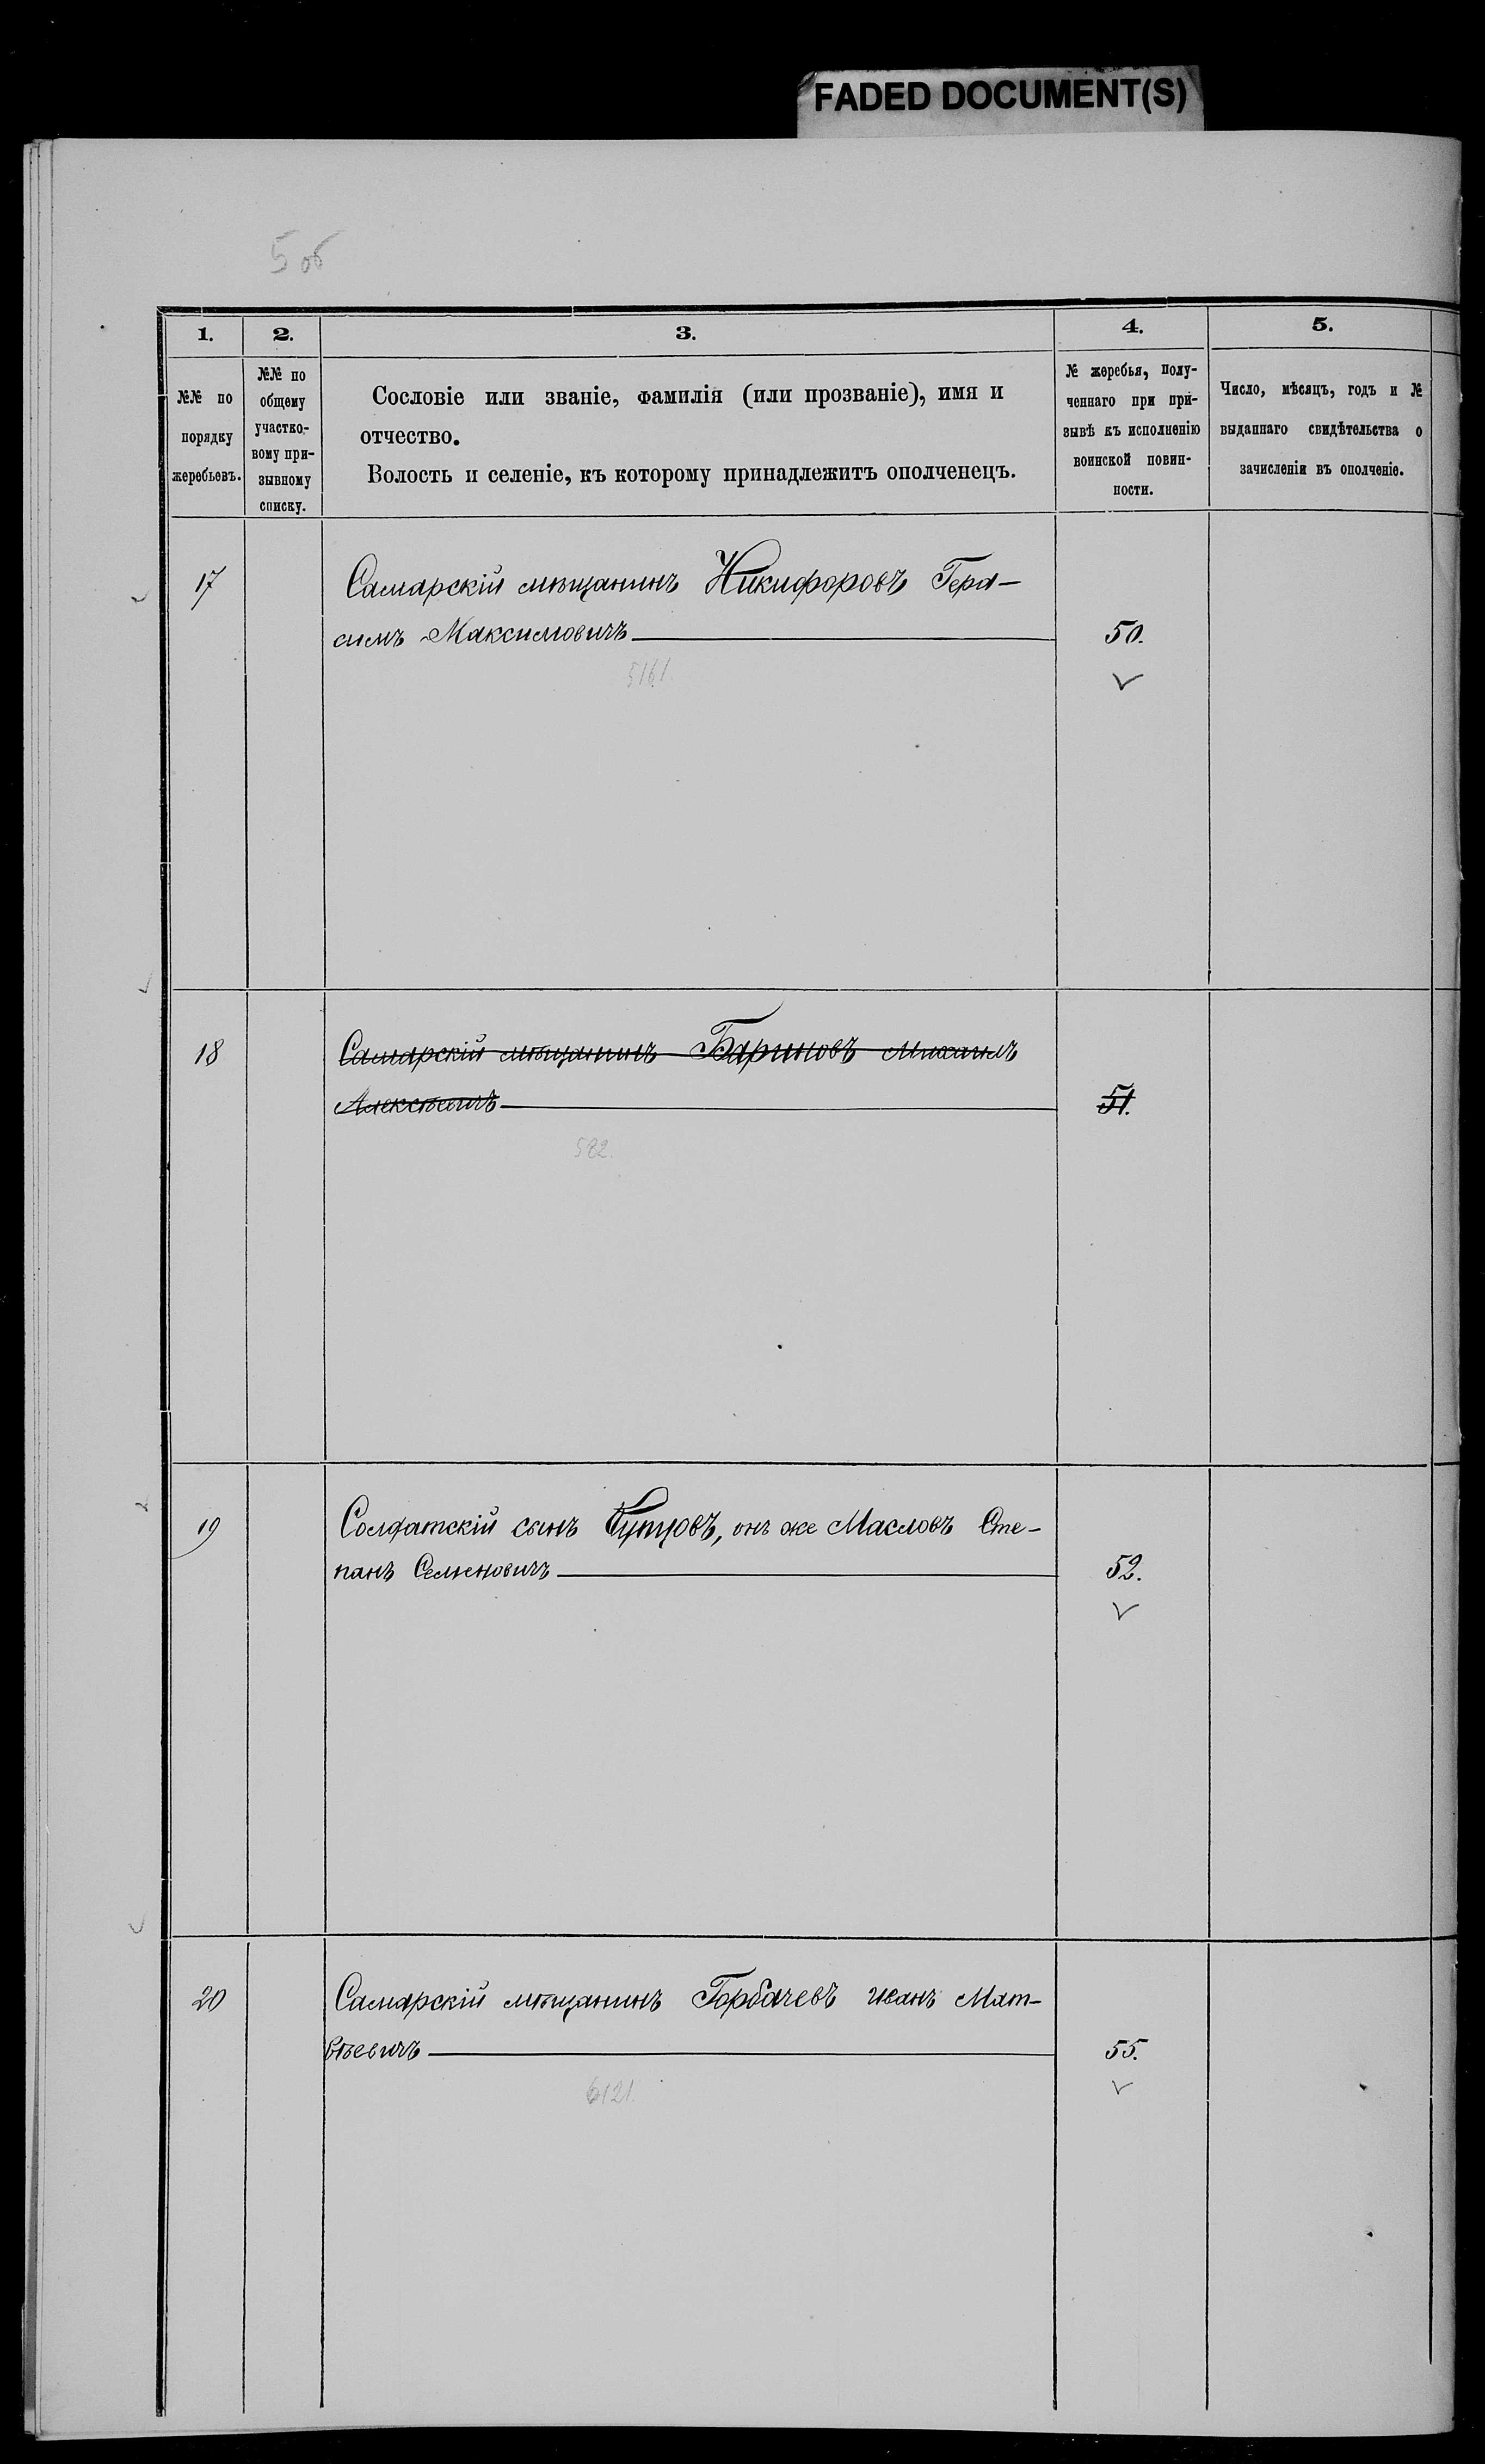 FADED DOCUMENT(S)
5 об
1. 2. 3. 4. 5.
№№ по порядку жеребьевъ.
№№ по общему участко-вому при-зывному списку.
Сословіе или званіе, фамилія (или прозваніе), имя и
отчество.
Волость и селеніе, къ которому принадлежитъ ополченецъ.
№ жеребья, полу-
ченнаго при при-
зывѣ къ исполненію
воинской повин-
ности.
Число, мѣсяцъ, годъ и №
выданнаго свидѣтельства о
зачисленіи въ ополченіе.
17 Самарскій мѣщанинъ Никифоровъ Гера-
симъ Максимовичъ 50.
5161.
18 Самарскій мѣщанинъ Бариновъ Михаилъ
Алексѣевичъ 51.
582.
19 Солдатскій сынъ онъ же Масловъ Сте-
панъ Семеновичъ 52.
20 Самарскій мѣщанинъ Горбачевъ Иванъ Мат-
вѣевичъ 55.
6121.